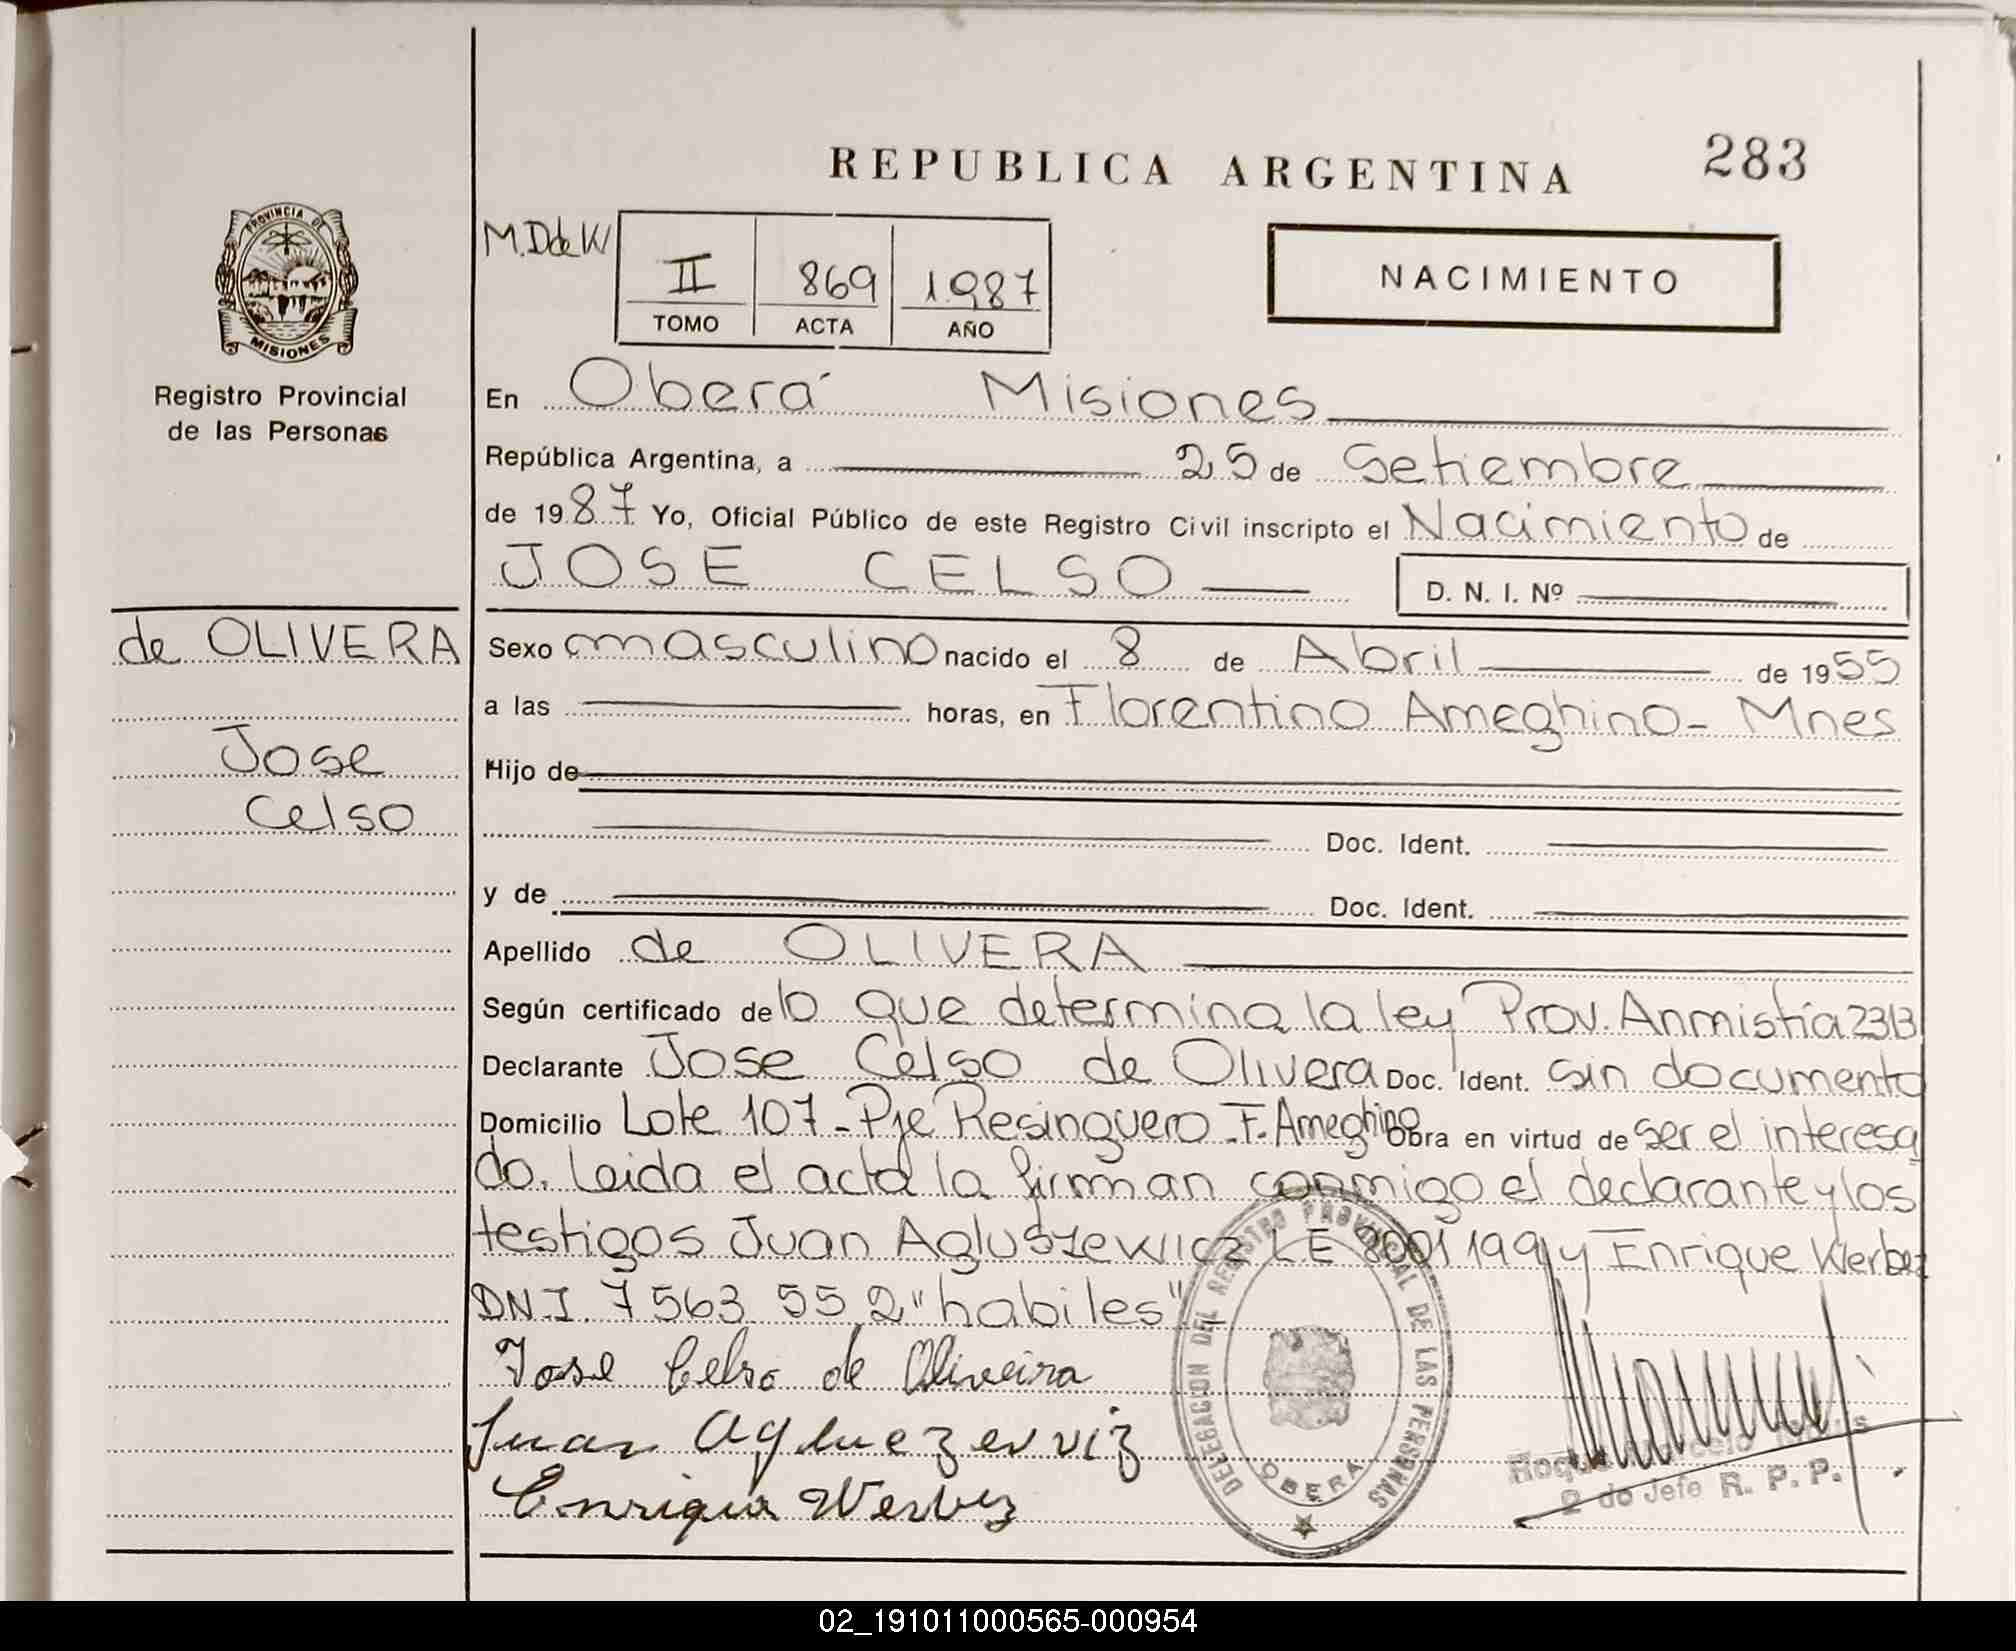 REPUBLICA ARGENTINA
283
PROVINCIA DE
MISIONES
Registro Provincial
de las Personas
M.DdeW
II 869 1987
TOMO ACTA AÑO
NACIMIENTO
En Oberá Misiones
República Argentina, a 25 de Setiembre
de 1987 Yo, Oficial Público de este Registro Civil inscripto el Nacimiento de
JOSE CELSO D. N. I. Nº
de OLIVERA
Jose
Celso
Sexo masculino nacido el 8 de Abril de 1955
a las horas, en Florentino Ameghino - Mnes
Hijo de
Doc. Ident.
y de Doc. Ident.
Apellido de OLIVERA
Según certificado de lo que determina la ley Prov. Anmistía 2313
Declarante Jose Celso de Olivera Doc. Ident. sin documento
Domicilio Lote 107 - Pje Resinguero - F. Ameghino Obra en virtud de ser el interesa
do. Leida el acta la firman conmigo el declarante y los
testigos Juan Agluszewicz LE 8001199 y Enrique Werbez
DNI 7563552 "habiles"
Jose Celso de Oliveira
Juan
Enrique Werbez
DELEGACION DEL REGISTRO PROVINCIAL DE LAS PERSONAS
OBERA
Roque Marcelo
2 do Jefe R. P. P.
02_191011000565-000954